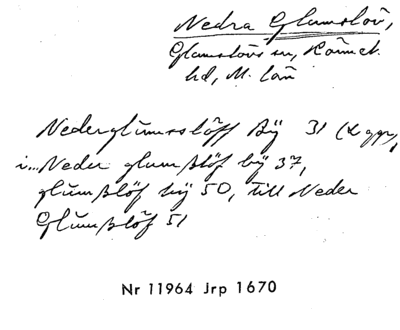 Nedra Glumslöv,
Glumslövs sn, Rönneb.
hd, M. län
Nederglumsslöff Bÿ 31 (2 ggr),
i... Neder glumßlöf bÿ 37,
glumßlöf bÿ 50, till Neder
Glumßlöf 51
Nr 11964 Jrp 1670